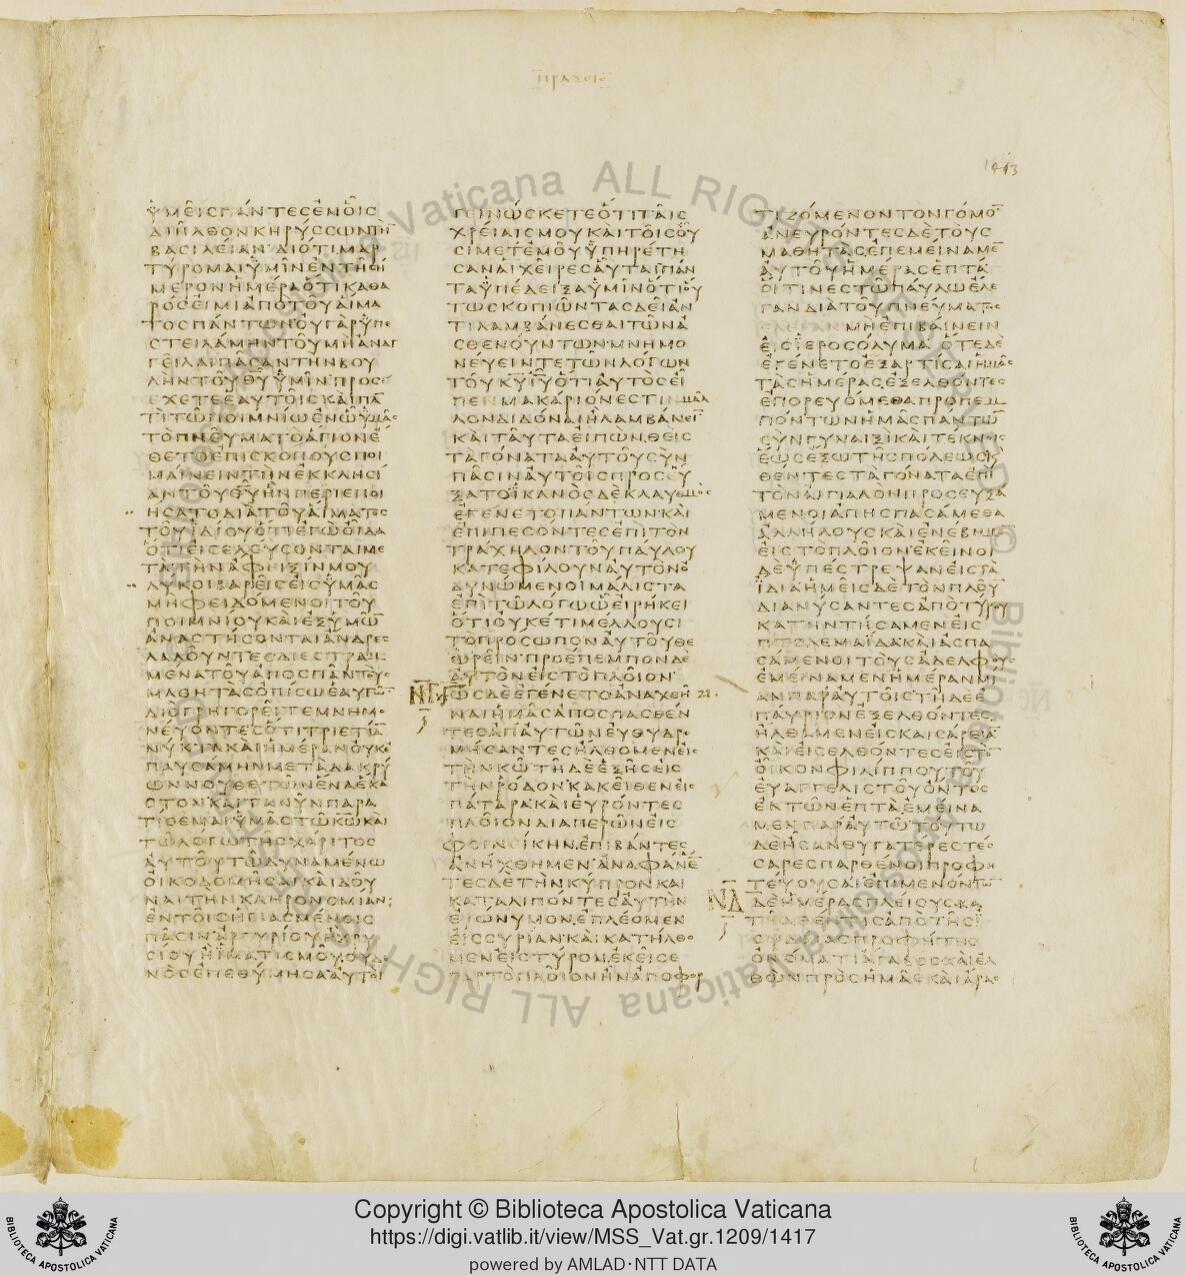 ΠΡΑΞΕΙΣ
1413
ΥΜΕΙΣΠΑΝΤΕΣΕΝΟΙΣ
ΔΙΗΛΘΟΝΚΗΡΥΣΣΩΝΤΗΝ
ΒΑΣΙΛΕΙΑΝ ΔΙΟΤΙΜΑΡ
ΤΥΡΟΜΑΙΫΜΙΝΕΝΤΗΣΗ
ΜΕΡΟΝΗΜΕΡΑΟΤΙΚΑΘΑ
ΡΟΣΕΙΜΙΑΠΟΤΟΥΑΙΜΑ
ΤΟΣΠΑΝΤΩΝΟΥΓΑΡΫΠΕ
ΣΤΕΙΛΑΜΗΝΤΟΥΜΗΑΝΑΓ
ΓΕΙΛΑΙΠΑΣΑΝΤΗΝΒΟΥ
ΛΗΝΤΟΥΘΥΫΜΙΝ ΠΡΟΣΕ
ΧΕΤΕΕΑΥΤΟΙΣΚΑΙΠΑ
ΤΙΤΩΠΟΙΜΝΙΩΕΝΩΫΜΑΣ
ΤΟΠΝΕΥΜΑΤΟΑΓΙΟΝΕ
ΘΕΤΟΕΠΙΣΚΟΠΟΥΣΠΟΙ
ΜΑΙΝΕΙΝΤΗΝΕΚΚΛΗΣΙ
ΑΝΤΟΥΘΥΗΝΠΕΡΙΕΠΟΙ
ΗΣΑΤΟΔΙΑΤΟΥΑΙΜΑΤΟΣ
ΤΟΥΙΔΙΟΥΟΤΙΕΓΩΟΙΔΑ
ΟΤΙΕΙΣΕΛΕΥΣΟΝΤΑΙΜΕ
ΤΑΤΗΝΑΦΕΙΞΙΝΜΟΥ
ΛΥΚΟΙΒΑΡΕΙΣΕΙΣΫΜΑΣ
ΜΗΦΕΙΔΟΜΕΝΟΙΤΟΥ
ΠΟΙΜΝΙΟΥΚΑΙΕΞΫΜΩ
ΑΝΑΣΤΗΣΟΝΤΑΙΑΝΔΡΕΣ
ΛΑΛΟΥΝΤΕΣΔΙΕΣΤΡΑΜ
ΜΕΝΑΤΟΥΑΠΟΣΠΑΝΤΟΥΣ
ΜΑΘΗΤΑΣΟΠΙΣΩΕΑΥΤΩ
ΔΙΟΓΡΗΓΟΡΕΙΤΕΜΝΗΜΟ
ΝΕΥΟΝΤΕΣΟΤΙΤΡΙΕΤΙΑ
ΝΥΚΤΑΚΑΙΗΜΕΡΑΝΟΥΚΕ
ΠΑΥΣΑΜΗΝΜΕΤΑΔΑΚΡΥ
ΩΝΝΟΥΘΕΤΩΝΕΝΑΕΚΑ
ΣΤΟΝ ΚΑΙΤΑΝΥΝΠΑΡΑ
ΤΙΘΕΜΑΙΫΜΑΣΤΩΚΩΚΑΙ
ΤΩΛΟΓΩΤΗΣΧΑΡΙΤΟΣ
ΑΥΤΟΥΤΩΔΥΝΑΜΕΝΩ
ΟΙΚΟΔΟΜΗΣΑΙΚΑΙΔΟΥ
ΝΑΙΤΗΝΚΛΗΡΟΝΟΜΙΑΝ
ΕΝΤΟΙΣΗΓΙΑΣΜΕΝΟΙΣ
ΠΑΣΙΝΑΡΓΥΡΙΟΥΗΧΡΥ
ΣΙΟΥΗΙΜΑΤΙΣΜΟΥΟΥΔΕ
ΝΟΣΕΠΕΘΥΜΗΣΑΑΥΤΟΙ
ΓΕΙΝΩΣΚΕΤΕΟΤΙΤΑΙΣ
ΧΡΕΙΑΙΣΜΟΥΚΑΙΤΟΙΣΟΥ
ΣΙΜΕΤΕΜΟΥΫΠΗΡΕΤΗ
ΣΑΝΑΙΧΕΙΡΕΣΑΥΤΑΙΠΑΝ
ΤΑΫΠΕΔΕΙΞΑΫΜΙΝΟΤΙΟΥ
ΤΩΣΚΟΠΙΩΝΤΑΣΔΕΙΑΝ
ΤΙΛΑΜΒΑΝΕΣΘΑΙΤΩΝΑ
ΣΘΕΝΟΥΝΤΩΝΜΝΗΜΟ
ΝΕΥΕΙΝΤΕΤΩΝΛΟΓΩΝ
ΤΟΥΚΥΙΥΟΤΙΑΥΤΟΣΕΙ
ΠΕΝΜΑΚΑΡΙΟΝΕΣΤΙΝΜΑΛ
ΛΟΝΔΙΔΟΝΑΙΗΛΑΜΒΑΝΕΙ
ΚΑΙΤΑΥΤΑΕΙΠΩΝΘΕΙΣ
ΤΑΓΟΝΑΤΑΑΥΤΟΥΣΥΝ
ΠΑΣΙΝΑΥΤΟΙΣΠΡΟΣΕΥ
ΞΑΤΟΪΚΑΝΟΣΔΕΚΛΑΥΘΜΟΣ
ΕΓΕΝΕΤΟΠΑΝΤΩΝΚΑΙ
ΕΠΙΠΕΣΟΝΤΕΣΕΠΙΤΟΝ
ΤΡΑΧΗΛΟΝΤΟΥΠΑΥΛΟΥ
ΚΑΤΕΦΙΛΟΥΝΑΥΤΟΝΟ
ΔΥΝΩΜΕΝΟΙΜΑΛΙΣΤΑ
ΕΠΙΤΩΛΟΓΩΩΕΙΡΗΚΕΙ
ΟΤΙΟΥΚΕΤΙΜΕΛΛΟΥΣΙ
ΤΟΠΡΟΣΩΠΟΝΑΥΤΟΥΘΕ
ΩΡΕΙΝ ΠΡΟΕΠΕΜΠΟΝΔΕ
ΑΥΤΟΝΕΙΣΤΟΠΛΟΙΟΝ
ΩΣΔΕΕΓΕΝΕΤΟΑΝΑΧΘΗ
ΝΑΙΗΜΑΣΑΠΟΣΠΑΣΘΕΝ
ΤΕΣΑΠΑΥΤΩΝΕΥΘΥΔΡΟ
ΜΗΣΑΝΤΕΣΗΛΘΟΜΕΝΕΙΣ
ΤΗΝΚΩΤΗΔΕΕΞΗΣΕΙΣ
ΤΗΝΡΟΔΟΝΚΑΚΕΙΘΕΝΕΙΣ
ΠΑΤΑΡΑΚΑΙΕΥΡΟΝΤΕΣ
ΠΛΟΙΟΝΔΙΑΠΕΡΩΝΕΙΣ
ΦΟΙΝΕΙΚΗΝΕΠΙΒΑΝΤΕΣ
ΑΝΗΧΘΗΜΕΝ ΑΝΑΦΑΝΕ
ΤΕΣΔΕΤΗΝΚΥΠΡΟΝΚΑΙ
ΚΑΤΑΛΙΠΟΝΤΕΣΑΥΤΗΝ
ΕΥΩΝΥΜΟΝΕΠΛΕΟΜΕΝ
ΕΙΣΣΥΡΙΑΝΚΑΙΚΑΤΗΛΘΟ
ΜΕΝΕΙΣΤΥΡΟΝΕΚΕΙΣΕ
ΓΑΡΤΟΠΛΟΙΟΝΗΝΑΠΟΦΟΡ
ΤΙΖΟΜΕΝΟΝΤΟΝΓΟΜΟ
ΑΝΕΥΡΟΝΤΕΣΔΕΤΟΥΣ
ΜΑΘΗΤΑΣΕΠΕΜΕΙΝΑΜΕ
ΑΥΤΟΥΗΜΕΡΑΣΕΠΤΑ
ΟΙΤΙΝΕΣΤΩΠΑΥΛΩΕΛΕ
ΓΑΝΔΙΑΤΟΥΠΝΕΥΜΑΤΟΣ
ΜΗΕΠΙΒΑΙΝΕΙΝ
ΕΙΣΙΕΡΟΣΟΛΥΜΑ ΟΤΕΔΕ
ΕΓΕΝΕΤΟΕΞΑΡΤΙΣΑΙΗΜΑΣ
ΤΑΣΗΜΕΡΑΣΕΞΕΛΘΟΝΤΕΣ
ΕΠΟΡΕΥΟΜΕΘΑΠΡΟΠΕΜ
ΠΟΝΤΩΝΗΜΑΣΠΑΝΤΩ
ΣΥΝΓΥΝΑΙΞΙΚΑΙΤΕΚΝΟΙΣ
ΕΩΣΕΞΩΤΗΣΠΟΛΕΩΣΚΑΙ
ΘΕΝΤΕΣΤΑΓΟΝΑΤΑΕΠΙ
ΤΟΝΑΙΓΙΑΛΟΝΠΡΟΣΕΥΞΑ
ΜΕΝΟΙΑΠΗΣΠΑΣΑΜΕΘΑ
ΑΛΛΗΛΟΥΣΚΑΙΕΝΕΒΗΜΕ
ΕΙΣΤΟΠΛΟΙΟΝΕΚΕΙΝΟΙ
ΔΕΫΠΕΣΤΡΕΨΑΝΕΙΣΤΑ
ΪΔΙΑΗΜΕΙΣΔΕΤΟΝΠΛΟΥ
ΔΙΑΝΥΣΑΝΤΕΣΑΠΟΤΥΡΟΥ
ΚΑΤΗΝΤΗΣΑΜΕΝΕΙΣ
ΠΤΟΛΕΜΑΪΔΑΚΑΙΑΣΠΑ
ΣΑΜΕΝΟΙΤΟΥΣΑΔΕΛΦΟΥΣ
ΕΜΕΙΝΑΜΕΝΗΜΕΡΑΝΜΙ
ΑΝΠΑΡΑΥΤΟΙΣΤΗΔΕΕ
ΠΑΥΡΙΟΝΕΞΕΛΘΟΝΤΕΣ
ΗΛΘΑΜΕΝΕΙΣΚΑΙΣΑΡΕΙΑ
ΚΑΙΕΙΣΕΛΘΟΝΤΕΣΕΙΣΤΟ
ΟΙΚΟΝΦΙΛΙΠΠΟΥΤΟΥ
ΕΥΑΓΓΕΛΙΣΤΟΥΟΝΤΟΣ
ΕΚΤΩΝΕΠΤΑΕΜΕΙΝΑ
ΜΕΝΠΑΡΑΥΤΩΤΟΥΤΩ
ΔΕΗΣΑΝΘΥΓΑΤΕΡΕΣΤΕΣ
ΣΑΡΕΣΠΑΡΘΕΝΟΙΠΡΟΦΗ
ΤΕΥΟΥΣΑΙΕΠΙΜΕΝΟΝΤΩ
ΔΕΗΜΕΡΑΣΠΛΕΙΟΥΣΚΑ
ΤΗΛΘΕΝΤΙΣΑΠΟΤΗΣΙΟΥ
ΔΑΙΑΣΠΡΟΦΗΤΗΣ
ΟΝΟΜΑΤΙΑΓΑΒΟΣΚΑΙΕΛ
ΘΩΝΠΡΟΣΗΜΑΣΚΑΙΑΡΑΣ
ΝΓ
ΝΔ
Copyright © Biblioteca Apostolica Vaticana
https://digi.vatlib.it/view/MSS_Vat.gr.1209/1417
powered by AMLAD·NTT DATA
BIBLIOTECA APOSTOLICA VATICANA
BIBLIOTECA APOSTOLICA VATICANA